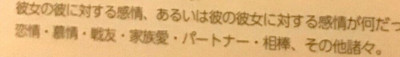 彼女の彼に対する感情、あるいは彼の彼女に対する感情が何だっ
恋情・慕情・戦友・家族愛・パートナー・相棒、その他諸々。